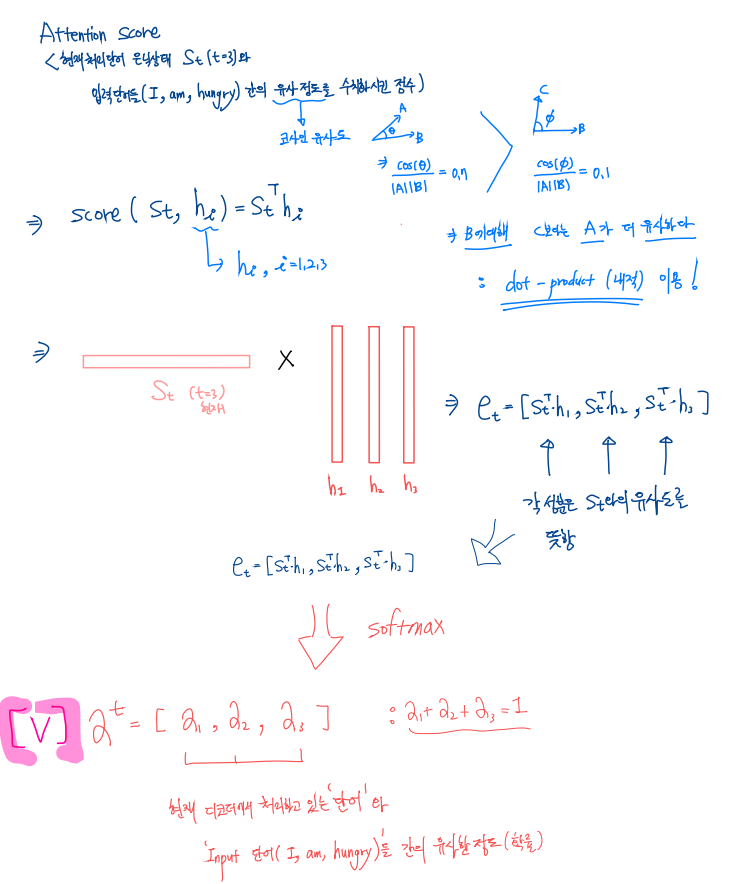 Attention score
< 현재 처리단어 은닉상태 St (t=3)와
입력단어들(I, am, hungry) 간의 유사 정도를 수치화시킨 점수)
코사인 유사도
A
θ
B
⇒ cos(θ) / |A||B| = 0.7
>
C
ϕ
B
cos(ϕ) / |A||B| = 0.1
⇒ score( St, hi ) = St^T hi
hi, i=1,2,3
⇒ B에대해 C보다는 A가 더 유사하다
: dot-product (내적) 이용!
⇒ St (t=3)
현재
X
h1 h2 h3
⇒ et = [St^T·h1, St^T·h2, St^T·h3]
각 성분은 St와의 유사도를
뜻함
et = [St^T·h1, St^T·h2, St^T·h3]
softmax
[V] a^t = [ a1, a2, a3 ] : a1 + a2 + a3 = 1
현재 디코더에서 처리하고 있는 '단어' 와
'Input 단어( I, am, hungry)'들 간의 유사한 정도(확률)